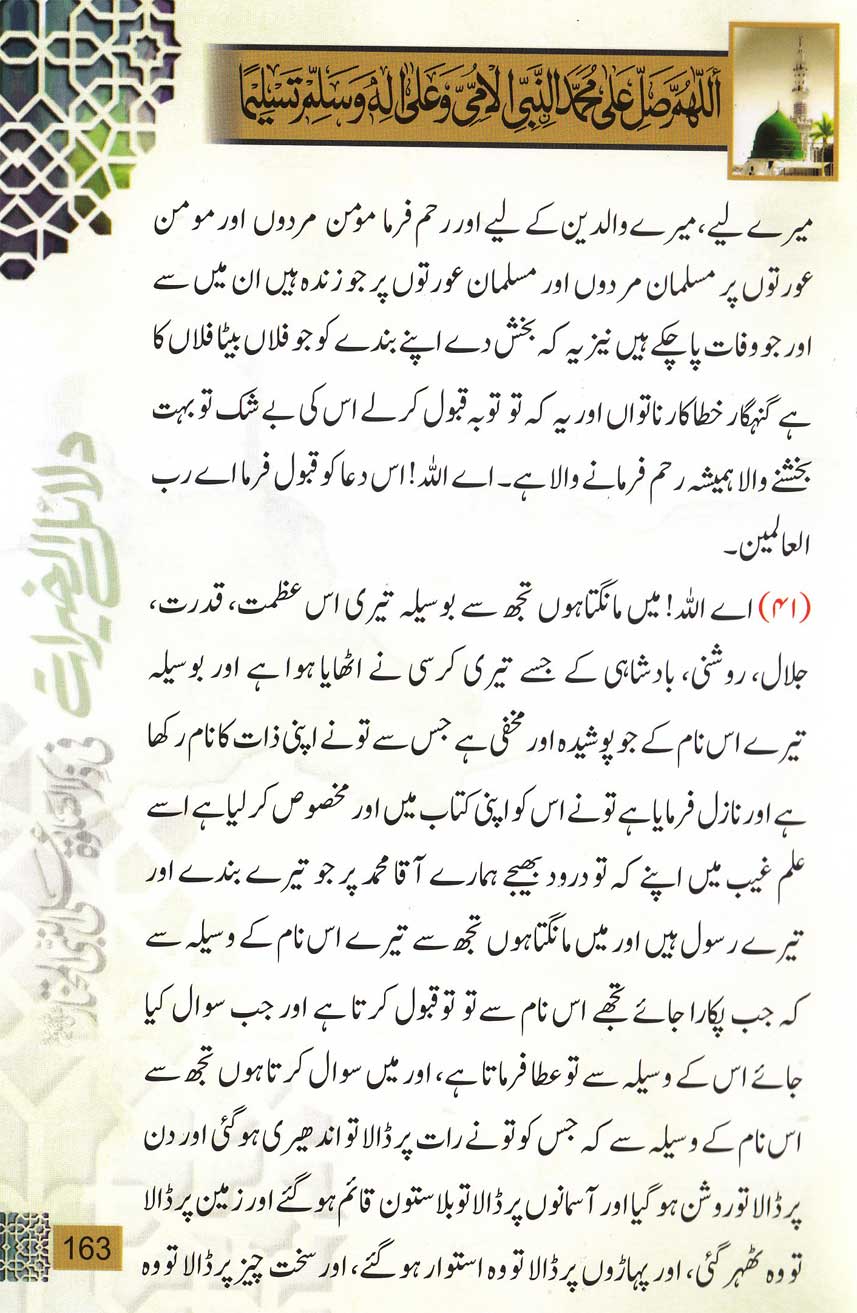 اَللّٰهُمَّ صَلِّ عَلٰى مُحَمَّدِ النَّبِيِّ الْاُمِّيِّ وَعَلٰى اٰلِهٖ وَسَلِّمْ تَسْلِيْمًا
میرے لیے، میرے والدین کے لیے اور رحم فرما مؤمن مردوں اور مومن
عورتوں پر مسلمان مردوں اور مسلمان عورتوں پر جو زندہ ہیں ان میں سے
اور جو وفات پا چکے ہیں نیز یہ کہ بخش دے اپنے بندے کو جو فلاں بیٹا فلاں کا
ہے گنہگار خطاکار ناتواں اور یہ کہ تو توبہ قبول کر لے اس کی بے شک تو بہت
بخشنے والا ہمیشہ رحم فرمانے والا ہے۔ اے اللہ! اس دعا کو قبول فرما اے رب
العالمین۔
(۴۱) اے اللہ! میں مانگتا ہوں تجھ سے بوسیلہ تیری اس عظمت، قدرت،
جلال، روشنی، بادشاہی کے جسے تیری کرسی نے اٹھایا ہوا ہے اور بوسیلہ
تیرے اس نام کے جو پوشیدہ اور مخفی ہے جس سے تو نے اپنی ذات کا نام رکھا
ہے اور نازل فرمایا ہے تو نے اس کو اپنی کتاب میں اور مخصوص کر لیا ہے اسے
علم غیب میں اپنے کہ تو درود بھیجے ہمارے آقا محمد پر جو تیرے بندے اور
تیرے رسول ہیں اور میں مانگتا ہوں تجھ سے تیرے اس نام کے وسیلہ سے
کہ جب پکارا جائے تجھے اس نام سے تو تو قبول کرتا ہے اور جب سوال کیا
جائے اس کے وسیلہ سے تو عطا فرماتا ہے، اور میں سوال کرتا ہوں تجھ سے
اس نام کے وسیلہ سے کہ جس کو تو نے رات پر ڈالا تو اندھیری ہو گئی اور دن
پر ڈالا تو روشن ہو گیا اور آسمانوں پر ڈالا تو بلاستون قائم ہو گئے اور زمین پر ڈالا
تو وہ ٹھہر گئی، اور پہاڑوں پر ڈالا تو وہ استوار ہو گئے، اور سخت چیز پر ڈالا تو وہ
دلائل الخیرات
فی ذکر الصلوۃ علی النبی المختار
163